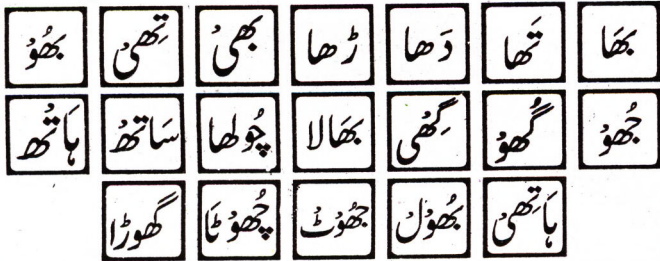 بھَا تَھا دَھا ڑھا بھیْ تِھیْ بھُوْ
جُھوْ گُھوْ گِھْی بھَالا چُولھا سَاتھْ ہَاتُھ
ہَاتِھیْ بُھوْل جُھوْٹ چُھوْٹَا گھوڑا